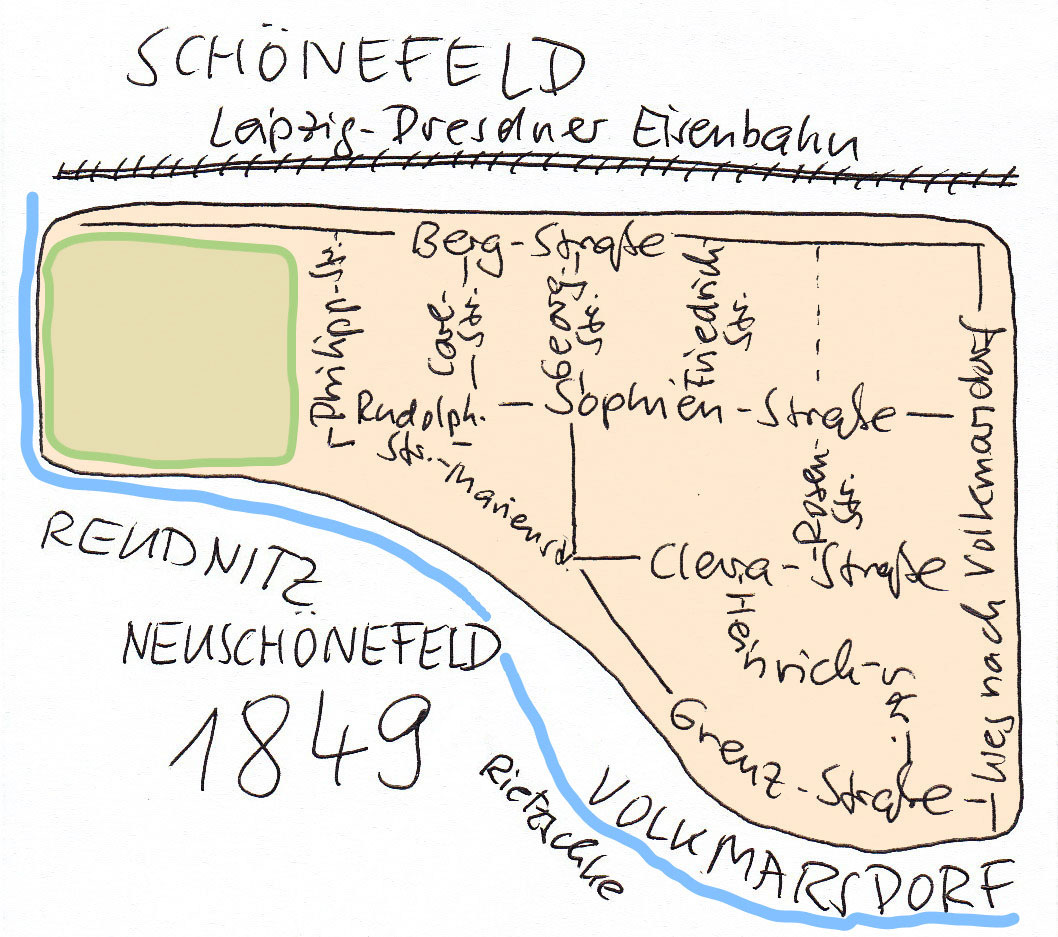 SCHÖNEFELD
Leipzig-Dresdner Eisenbahn
Berg-Straße
Philipp-Str.
Carl-
Str.
Georg-
Str.
Friedrich
Str.
Rudolph.
Str.
Sophien-Straße
Marienstr
Rosen
Str.
Clara-Straße
Heinrich-Str.
Grenz-Straße
Weg nach Volkmarsdorf
REUDNITZ
NEUSCHÖNEFELD
1849
Rietzschke
VOLKMARSDORF